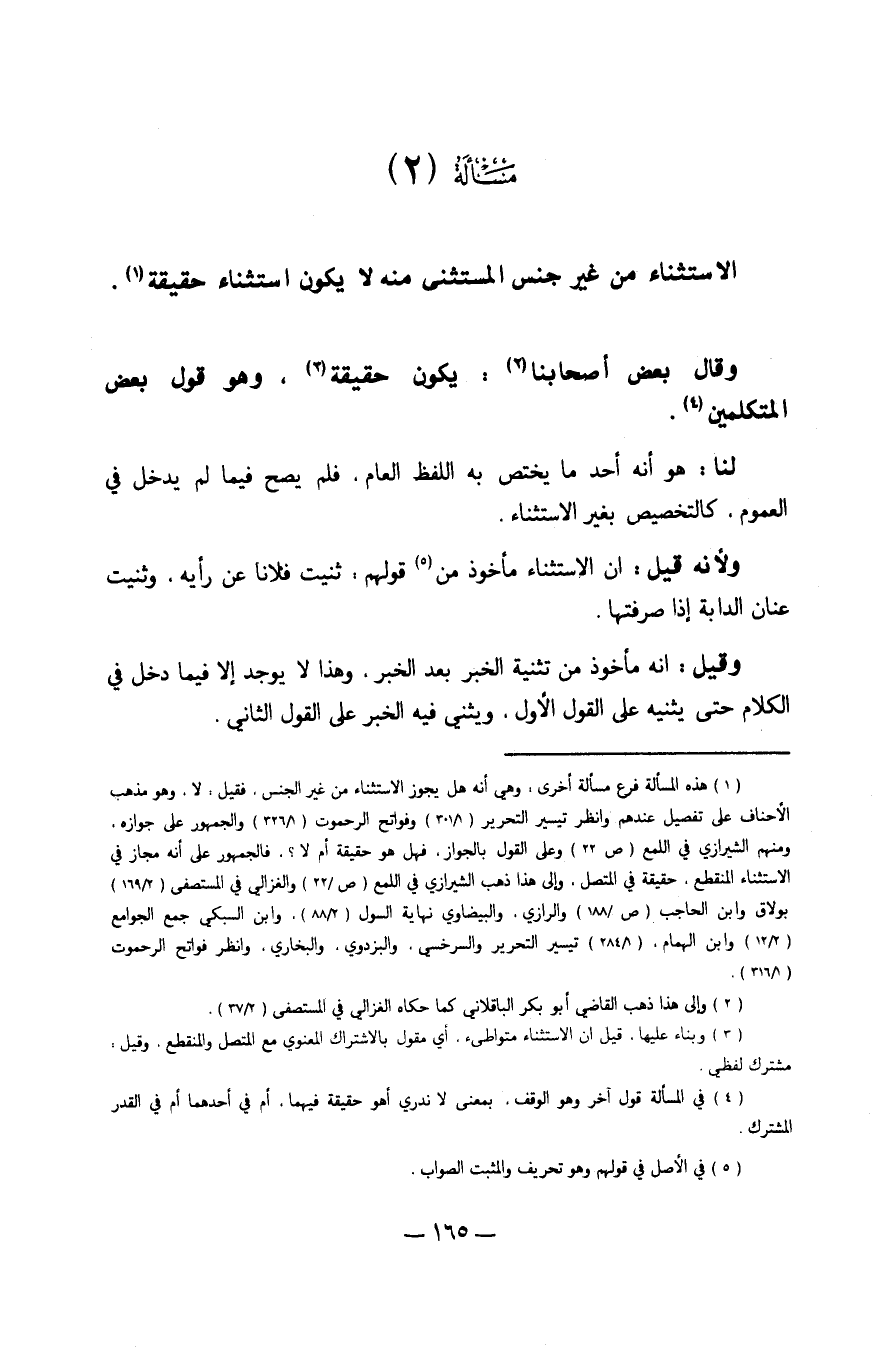 مسألة (٢)
الاستثناء من غير جنس المستثنى منه لا يكون استثناء حقيقة(١) .
وقال بعض أصحابنا(٢) : يكون حقيقة(٣) ، وهو قول بعض
المتكلمين(٤) .
لنا : هو أنه أحد ما يختص به اللفظ العام ، فلم يصح فيما لم يدخل في
العموم ، كالتخصيص بغير الاستثناء .
ولأنه قيل : ان الاستثناء مأخوذ من(٥) قولهم : ثنيت فلانا عن رأيه ، وثنيت
عنان الدابة إذا صرفتها .
وقيل : انه مأخوذ من تثنية الخبر بعد الخبر ، وهذا لا يوجد إلا فيما دخل في
الكلام حتى يثنيه على القول الأول ، ويثني فيه الخبر على القول الثاني .
( ١ ) هذه المسألة فرع مسألة أخرى ، وهي أنه هل يجوز الاستثناء من غير الجنس ، فقيل : لا ، وهو مذهب
الأحناف على تفصيل عندهم وانظر تيسير التحرير ( ٣٠١/١ ) وفواتح الرحموت ( ٣٢٦/١ ) والجمهور على جوازه ،
ومنهم الشيرازي في اللمع ( ص ٢٢ ) وعلى القول بالجواز ، فهل هو حقيقة أم لا ؟ ، فالجمهور على أنه مجاز في
الاستثناء المنقطع ، حقيقة في المتصل ، وإلى هذا ذهب الشيرازي في اللمع ( ص /٢٢ ) والغزالي في المستصفى ( ١٦٩/٢ )
بولاق وابن الحاجب ( ص /١٨٨ ) والرازي ، والبيضاوي نهاية السول ( ٨٨/٢ ) ، وابن السبكي جمع الجوامع
( ١٢/٢ ) وابن الهمام ، ( ٢٨٤/١ ) تيسير التحرير والسرخسي ، والبزدوي ، والبخاري ، وانظر فواتح الرحموت
( ٣١٦/١ ) .
( ٢ ) وإلى هذا ذهب القاضي أبو بكر الباقلاني كما حكاه الغزالي في المستصفى ( ٣٧/٢ ) .
( ٣ ) وبناء عليها ، قيل ان الاستثناء متواطىء ، أي مقول بالاشتراك المعنوي مع المتصل والمنقطع ، وقيل :
مشترك لفظي .
( ٤ ) في المسألة قول آخر وهو الوقف ، بمعنى لا ندري أهو حقيقة فيهما ، أم في أحدهما أم في القدر
المشترك .
( ٥ ) في الأصل في قولهم وهو تحريف والمثبت الصواب .
— ١٦٥ —